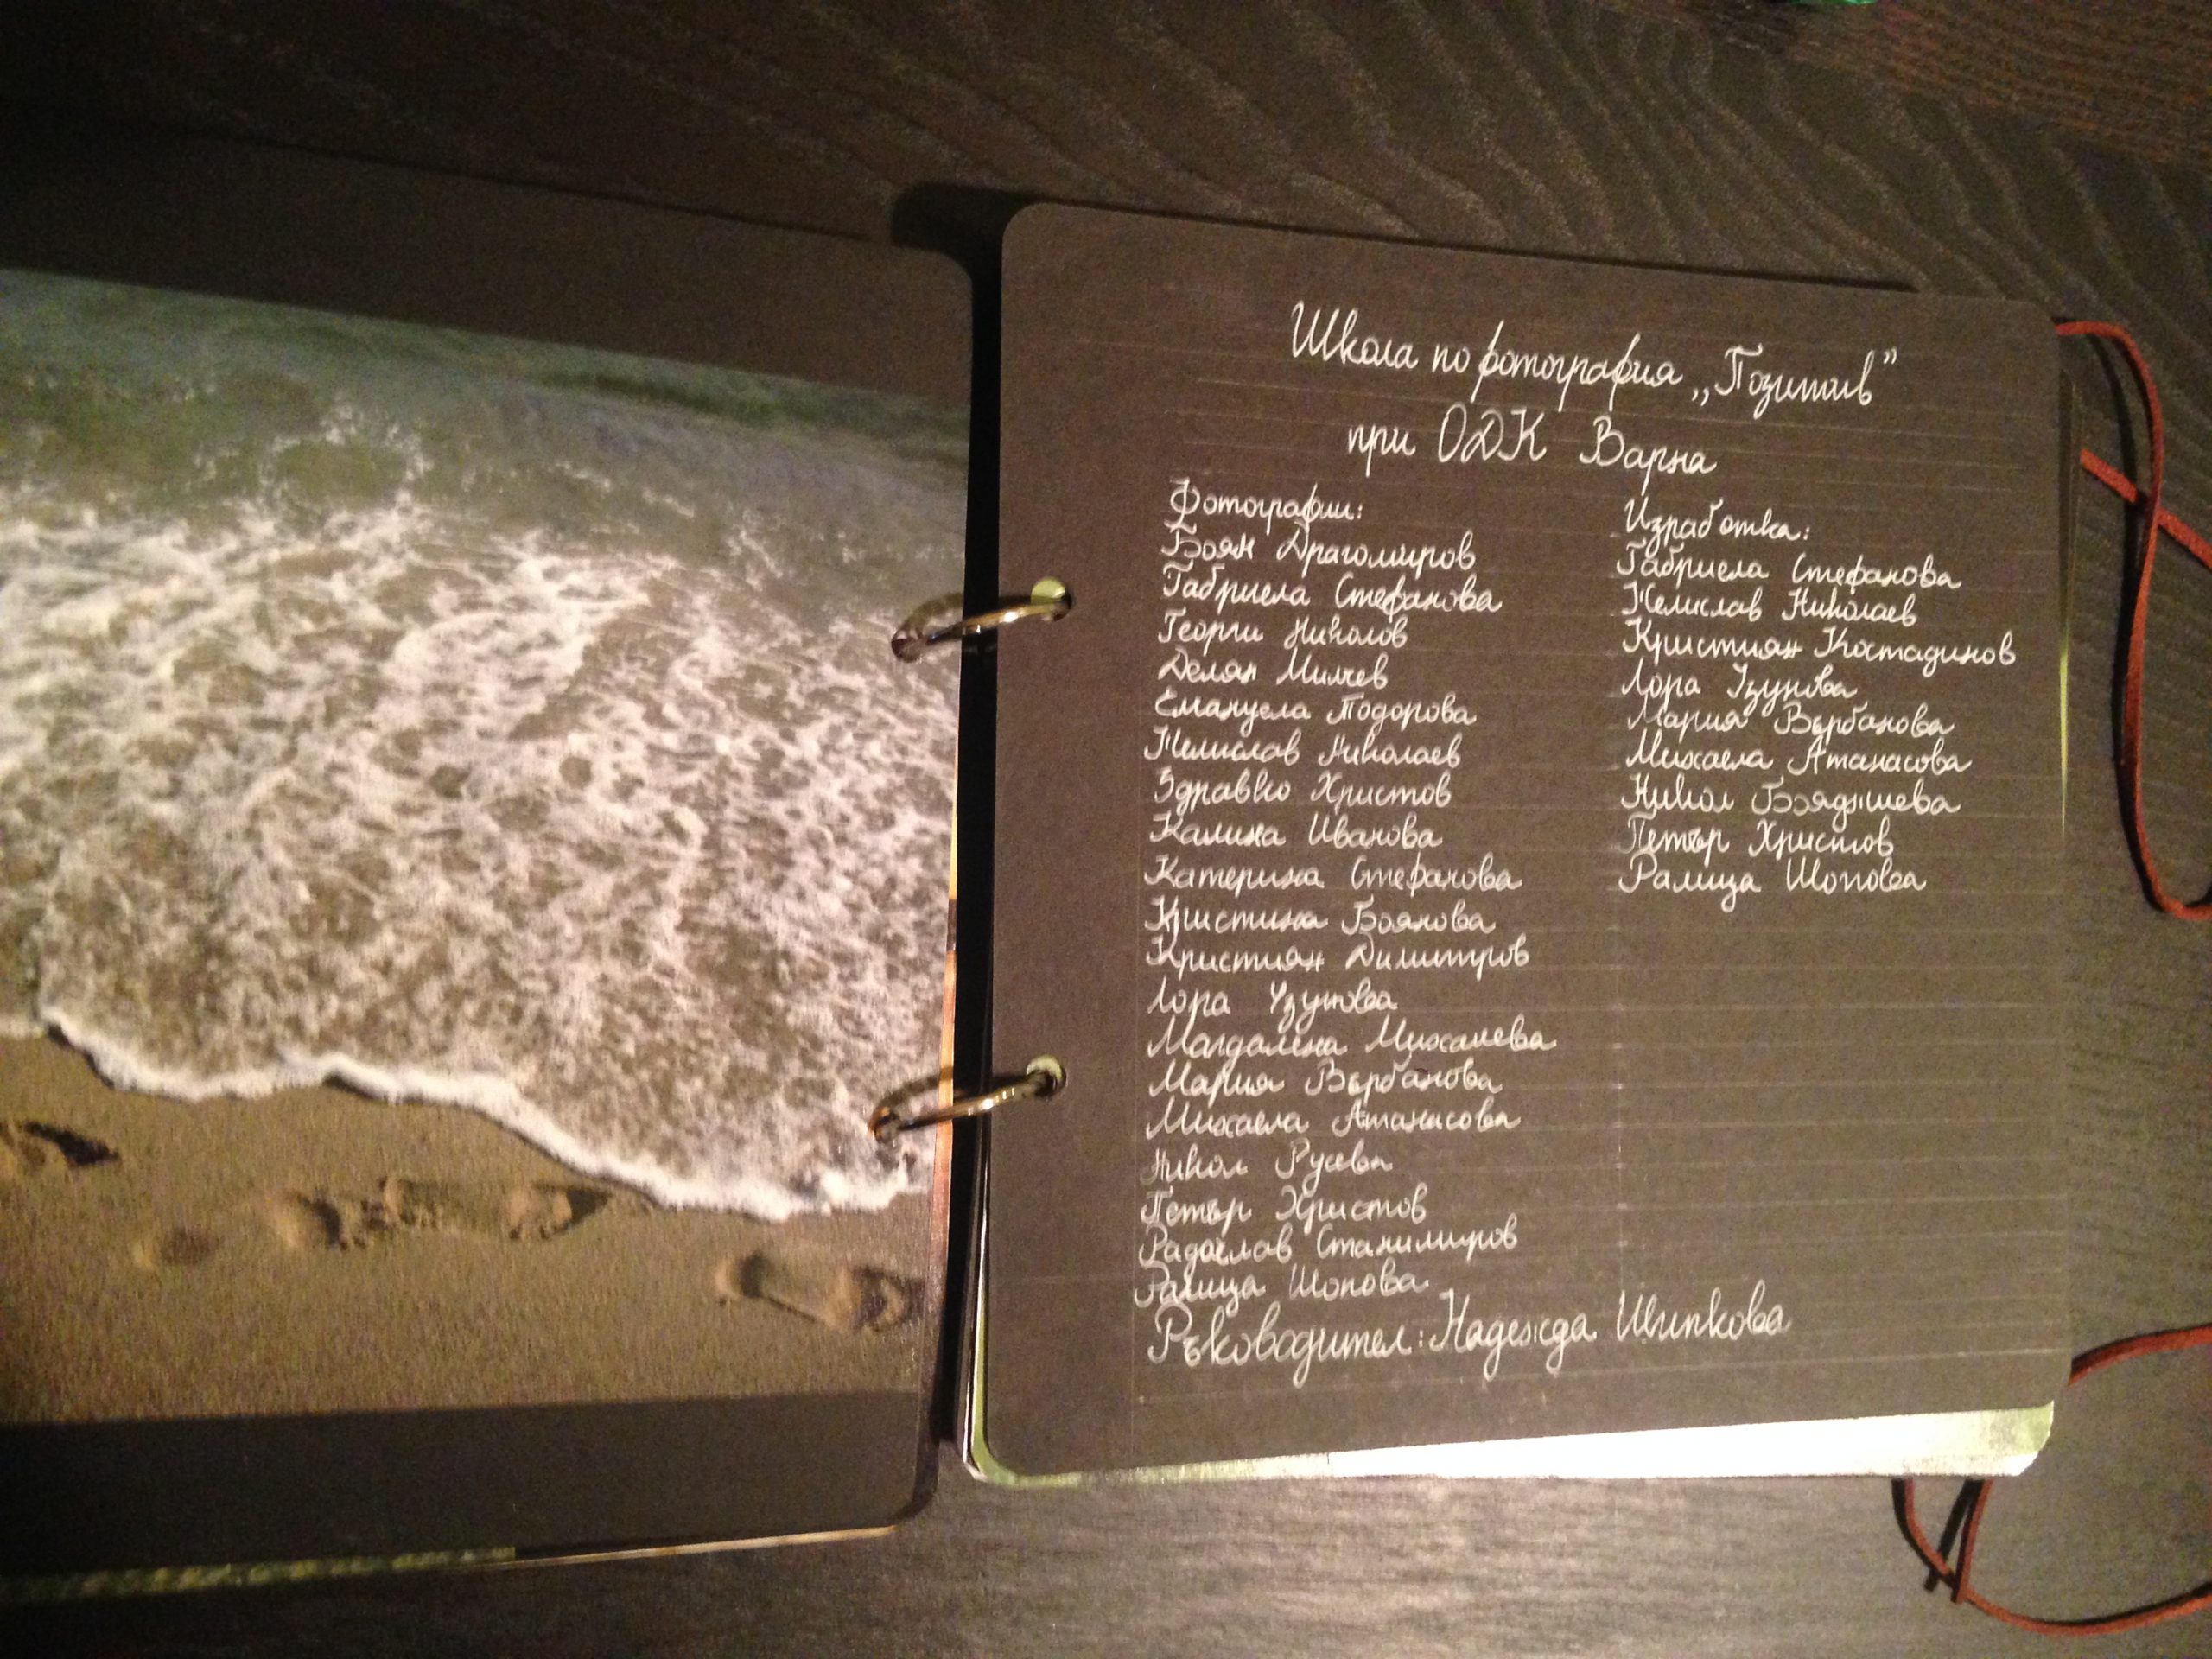 Школа по фотография „Позитив”
при ОДК Варна
Фотографии:
Боян Драгомиров
Габриела Стефанова
Георги Николов
Делян Милчев
Емануела Тодорова
Желислав Николаев
Здравко Христов
Калина Иванова
Катерина Стефанова
Кристина Боянова
Кристиян Димитров
Лора Узунова
Магдалена Михалева
Мария Върбанова
Михаела Атанасова
Никол Русева
Петър Христов
Радослав Станимиров
Ралица Шопова
Изработка:
Габриела Стефанова
Желислав Николаев
Кристиян Костадинов
Лора Узунова
Мария Върбанова
Михаела Атанасова
Никол Бояджиева
Петър Христов
Ралица Шопова
Ръководител: Надежда Шипкова